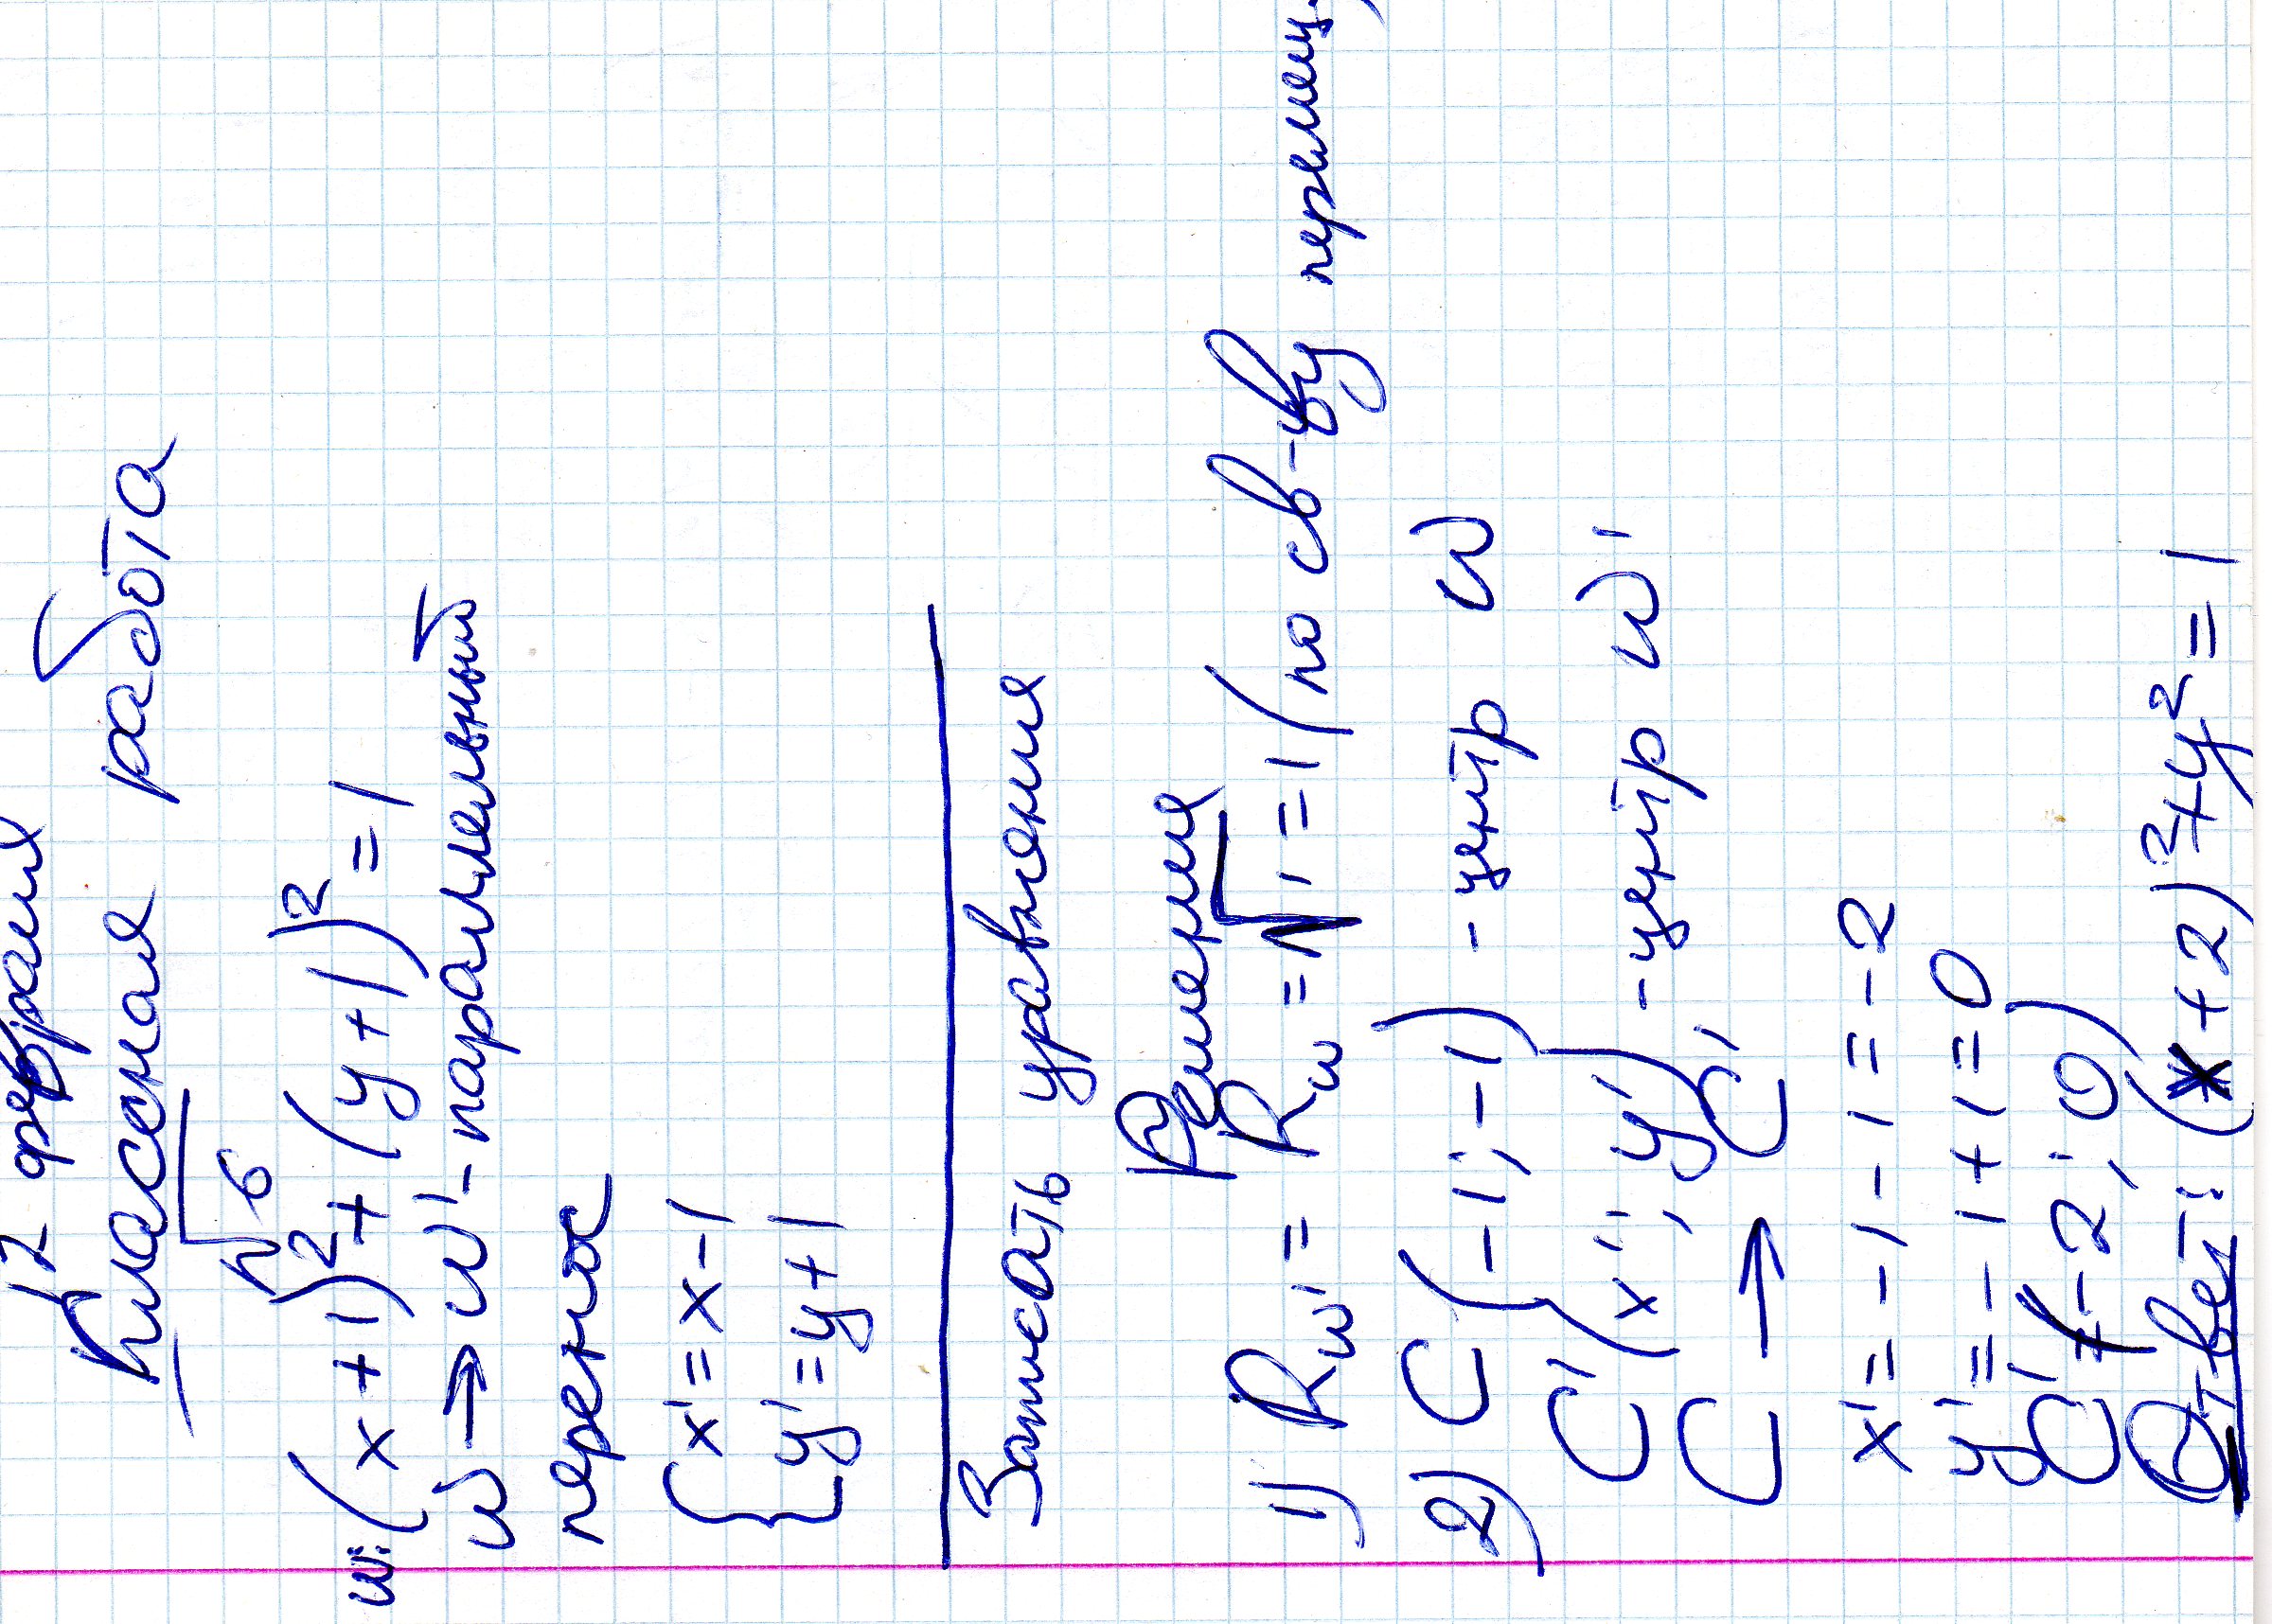 12 февраля
Классная работа
№6
ω: (x+1)²+(y+1)²=1
ω→ω'-параллельный
перенос
{x'=x-1
{y'=y+1
Записать уравнения
Решение
1) Rω' = Rω = √1 = 1 (по св-ву перемещ.)
2) C(-1; -1) - центр ω
C'(x'; y') - центр ω'
C → C'
x' = -1-1 = -2
y' = -1+1 = 0
C'(-2; 0)
Ответ: (x+2)²+y²=1